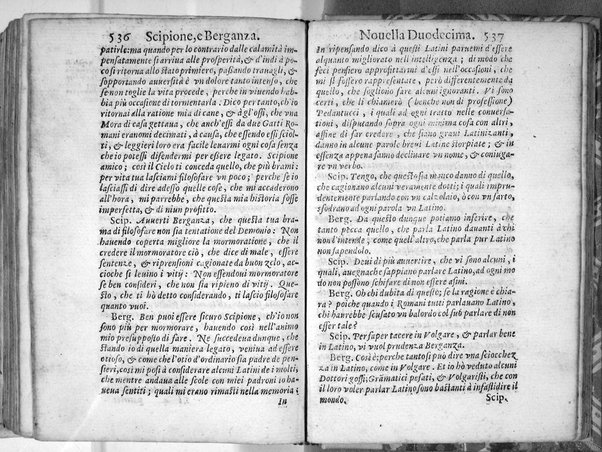 536 Scipione, e Berganza.
patirle: ma quando per lo contrario dalle calamità im-
pensatamente si arriua alle prosperità, & d'indi à po-
co si ritorna allo stato primiero, passando trauagli, &
sopportando auuersità è vn dolore tanto intenso, che
se non toglie la vita procede, perche in viuendo hab-
bia più occasione di tormentarla: Dico per tanto, ch'io
ritornai alla ration mia di cane, & à gl'ossi, che vna
Mora di casa gettaua, che anch'essi da due Gatti Ro-
mani erano decimati, à causa, che essendo essi sciol-
ti, & leggieri loro era facile leuarmi ogni cosa senza
che io potessi difendermi per essere legato. Scipione
amico; così il Cielo ti conceda quello, che più brami:
per vita tua lasciami filosofare vn poco; perche se io
lasciassi di dire adesso quelle cose, che mi accaderono
all'hora, mi parrebbe, che questa mia historia fosse
imperfetta, & di niun profitto.
Scip. Auuerti Berganza, che questa tua bra-
ma di filosofare non sia tentatione del Demonio: Non
hauendo coperta migliore la mormoratione, che il
credere il mormoratore ciò, che dice di male, essere
sentenze, & riprensioni cagionate da buon zelo, ac-
cioche si leuino i vitij: Non essendoui mormoratore
se ben consideri, che non sia ripieno di vitij. Que-
sto, che ti hò detto considerando, ti lascio filosofare
quanto vuoi.
Berg. Ben puoi essere sicuro Scipione, ch'io non
sono più per mormorare, hauendo così nell'animo
mio presupposto di fare. Ne succedeua dunque, che
stando io di quella maniera legato, veniua ad essere
otioso, & come che l'otio d'ordinario sia padre de pen-
sieri, così mi posi à considerare alcuni Latini de i molti,
che mentre andaua alle scole con miei padroni io ha-
ueua sentiti; quali mi erano rimasti nella memoria;
In
Nouella Duodecima. 537
In ripensando dico à questi Latini paruemi d'essere
alquanto migliorato nell'intelligenza; di modo che
feci pensiero approfittarmi d'essi nell'occasioni, che
mi si fossero rappresentate, però differentemente da
quello, che sogliono fare alcuni ignoranti. Vi sono
certi, che li chiamerò (benche non di professione)
Pedantucci, i quali ad ogni tratto nelle conuersa-
tioni, disputando sopra ogni minima cosa con altri,
affine di far credere, che siano graui Latinizanti, dan-
no in alcune parole breui Latine storpiate; & in
essenza appena sanno declinare vn nome, & coniuga-
re vn verbo.
Scip. Tengo, che questo sia manco danno di quello,
che cagionano alcuni veramente dotti; i quali impru-
dentemente parlando con vn calzolaio, ò con vn sarto,
sfodrano ad ogni parola Latini.
Berg. Da questo dunque potiamo inferire, che
tanto pecca quello, che parla Latino dauanti à chi
non l'intende, come quell'altro, che parla pur Latino
non sapendolo.
Scip. Deui di più auuertire, che vi sono alcuni, i
quali, auegnache sappiano parlare Latino, ad ogni mo
do non possono schifare di non essere asini.
Berg. Oh chi dubita di questo; se la ragione è chia-
ra? poiche quando i Romani tutti parlauano Latino,
chi harrebbe scusato vn balordo col sub furbo di non
esser tale?
Scip. Per saper tacere in Volgare, & parlar bene
in Latino, vi vuol prudenza Berganza.
Berg. Così è: perche tanto si può dire vna sciocchez
za in Latino, come in Volgare. Et io hò veduto alcuni
Dottori goffi; Gramatici pesati, & Volgaristi, che con
il loro voler parlar Latino sono bastanti à infastidire il
mondo.
Scip.